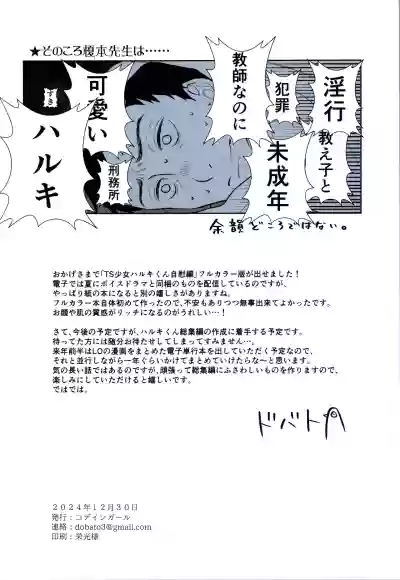 ★そのころ榎本先生は……
淫行
教え子と
犯罪
未成年
教師なのに
可愛い
刑務所
すき
ハルキ
余韻どころではない。
おかげさまで「TS少女ハルキくん自慰編」フルカラー版が出せました！
電子では夏にボイスドラマと同梱のものを配信しているのですが、
やっぱり紙の本になると別の嬉しさがありますね。
フルカラー本自体初めて作ったので、不安もありつつ無事出来てよかったです。
お腹や肌の質感がリッチになるのがうれしい…！
さて、今後の予定ですが、ハルキくん総集編の作成に着手する予定です。
待ってた方には随分お待たせしてしまってすみません…。
来年前半はLOの漫画をまとめた電子単行本を出していただく予定なので、
それと並行しながら一年ぐらいかけてまとめていけたらな～と思います。
気の長い話ではあるのですが、頑張って総集編にふさわしいものを作りますので、
楽しみにしていただけると嬉しいです。
ではでは。
ドバト
２０２４年１２月３０日
発行：コデインガール
連絡：dobato3@gmail.com
印刷：栄光様